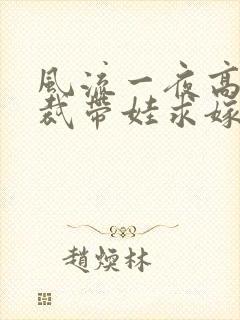 風流一夜高
裁帶娃求嫁
趙煥林